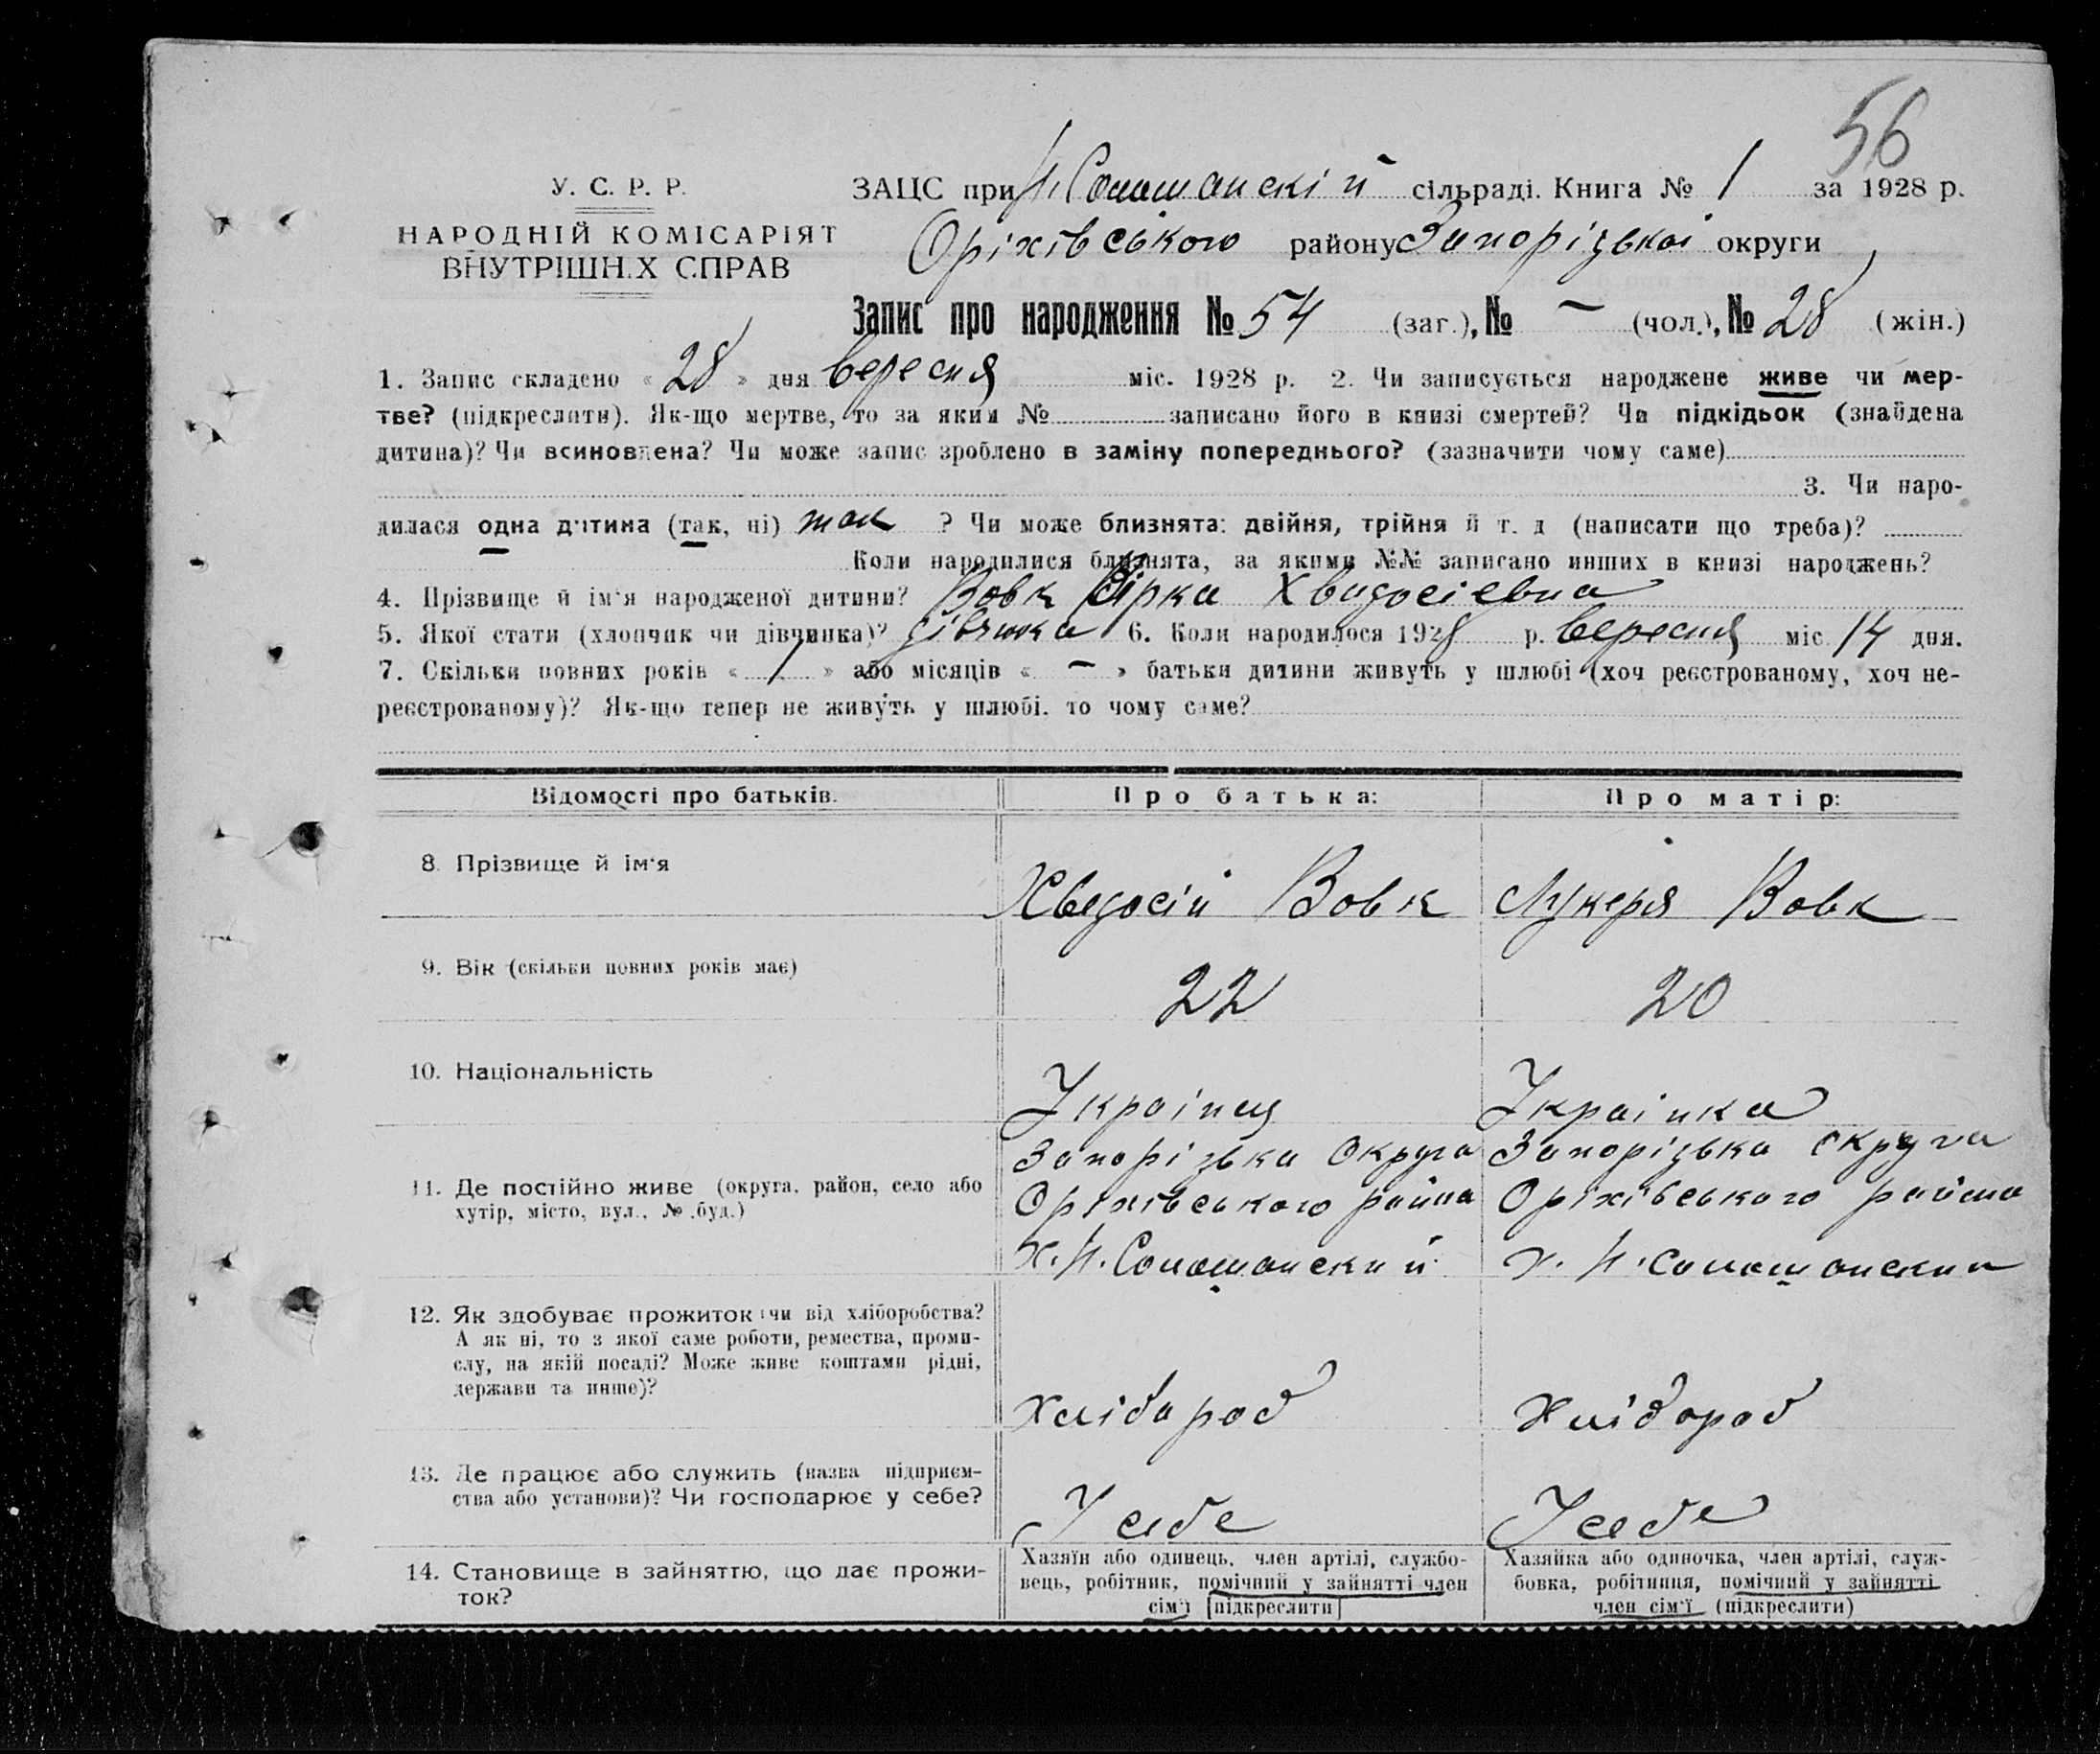 56
У. С. Р. Р.
НАРОДНІЙ КОМІСАРІЯТ
ВНУТРІШН.Х СПРАВ
ЗАЦС при сільраді. Книга № 1 за 1928 р.
Оріхівського району Запорізькоі округи
Запис про народження № 54 (заг.), № — (чол.), № 28 (жін.)
1. Запис складено « 28 » дня Вересня міс. 1928 р. 2. Чи записується народжене живе чи мер-
тве? (підкреслити). Як-що мертве, то за яким № записано його в книзі смертей? Чи підкідьок (знайдена
дитина)? Чи всиновлена? Чи може запис зроблено в заміну попереднього? (зазначити чому саме)
3. Чи наро-
дилася одна дитина (так, ні) так ? Чи може близнята: двійня, трійня й т. д (написати що треба)?
Коли народилися близнята, за якими №№ записано инших в книзі народжень?
4. Прізвище й ім'я народженої дитини? Вовк Вірка Хведосіевна
5. Якої стати (хлопчик чи дівчинка)? дівчинка 6. Коли народилося 1928 р. Вересня міс. 14 дня.
7. Скільки повних років « 1 » або місяців « — » батьки дитини живуть у шлюбі (хоч реєстрованому, хоч не-
реєстрованому)? Як-що тепер не живуть у шлюбі, то чому саме?
Відомості про батьків. Про батька: Про матір:
8. Прізвище й ім'я Хведосій Вовк Лукеря Вовк
9. Вік (скільки повних років має) 22 20
10. Національність Украінец Украінка
Запорізька Округа Запорізька округа
11. Де постійно живе (округа, район, село або Оріхівського района Оріхівського района
хутір, місто, вул., № буд.)
12. Як здобуває прожиток (чи від хліборобства?
А як ні, то з якої саме роботи, ремества, проми-
слу, на якій посаді? Може живе коштами рідні,
держави та инше)? Хлібороб Хлібороб
13. Де працює або служить (назва підприєм-
ства або установи)? Чи господарює у себе? У себе У себе
14. Становище в зайняттю, що дає прожи-
ток?
Хазяїн або одинець, член артілі, службо-
вець, робітник, помічний у зайнятті член
сім'ї (підкреслити)
Хазяйка або одиночка, член артілі, служ-
бовка, робітниця, помічний у зайнятті
член сім'ї (підкреслити)